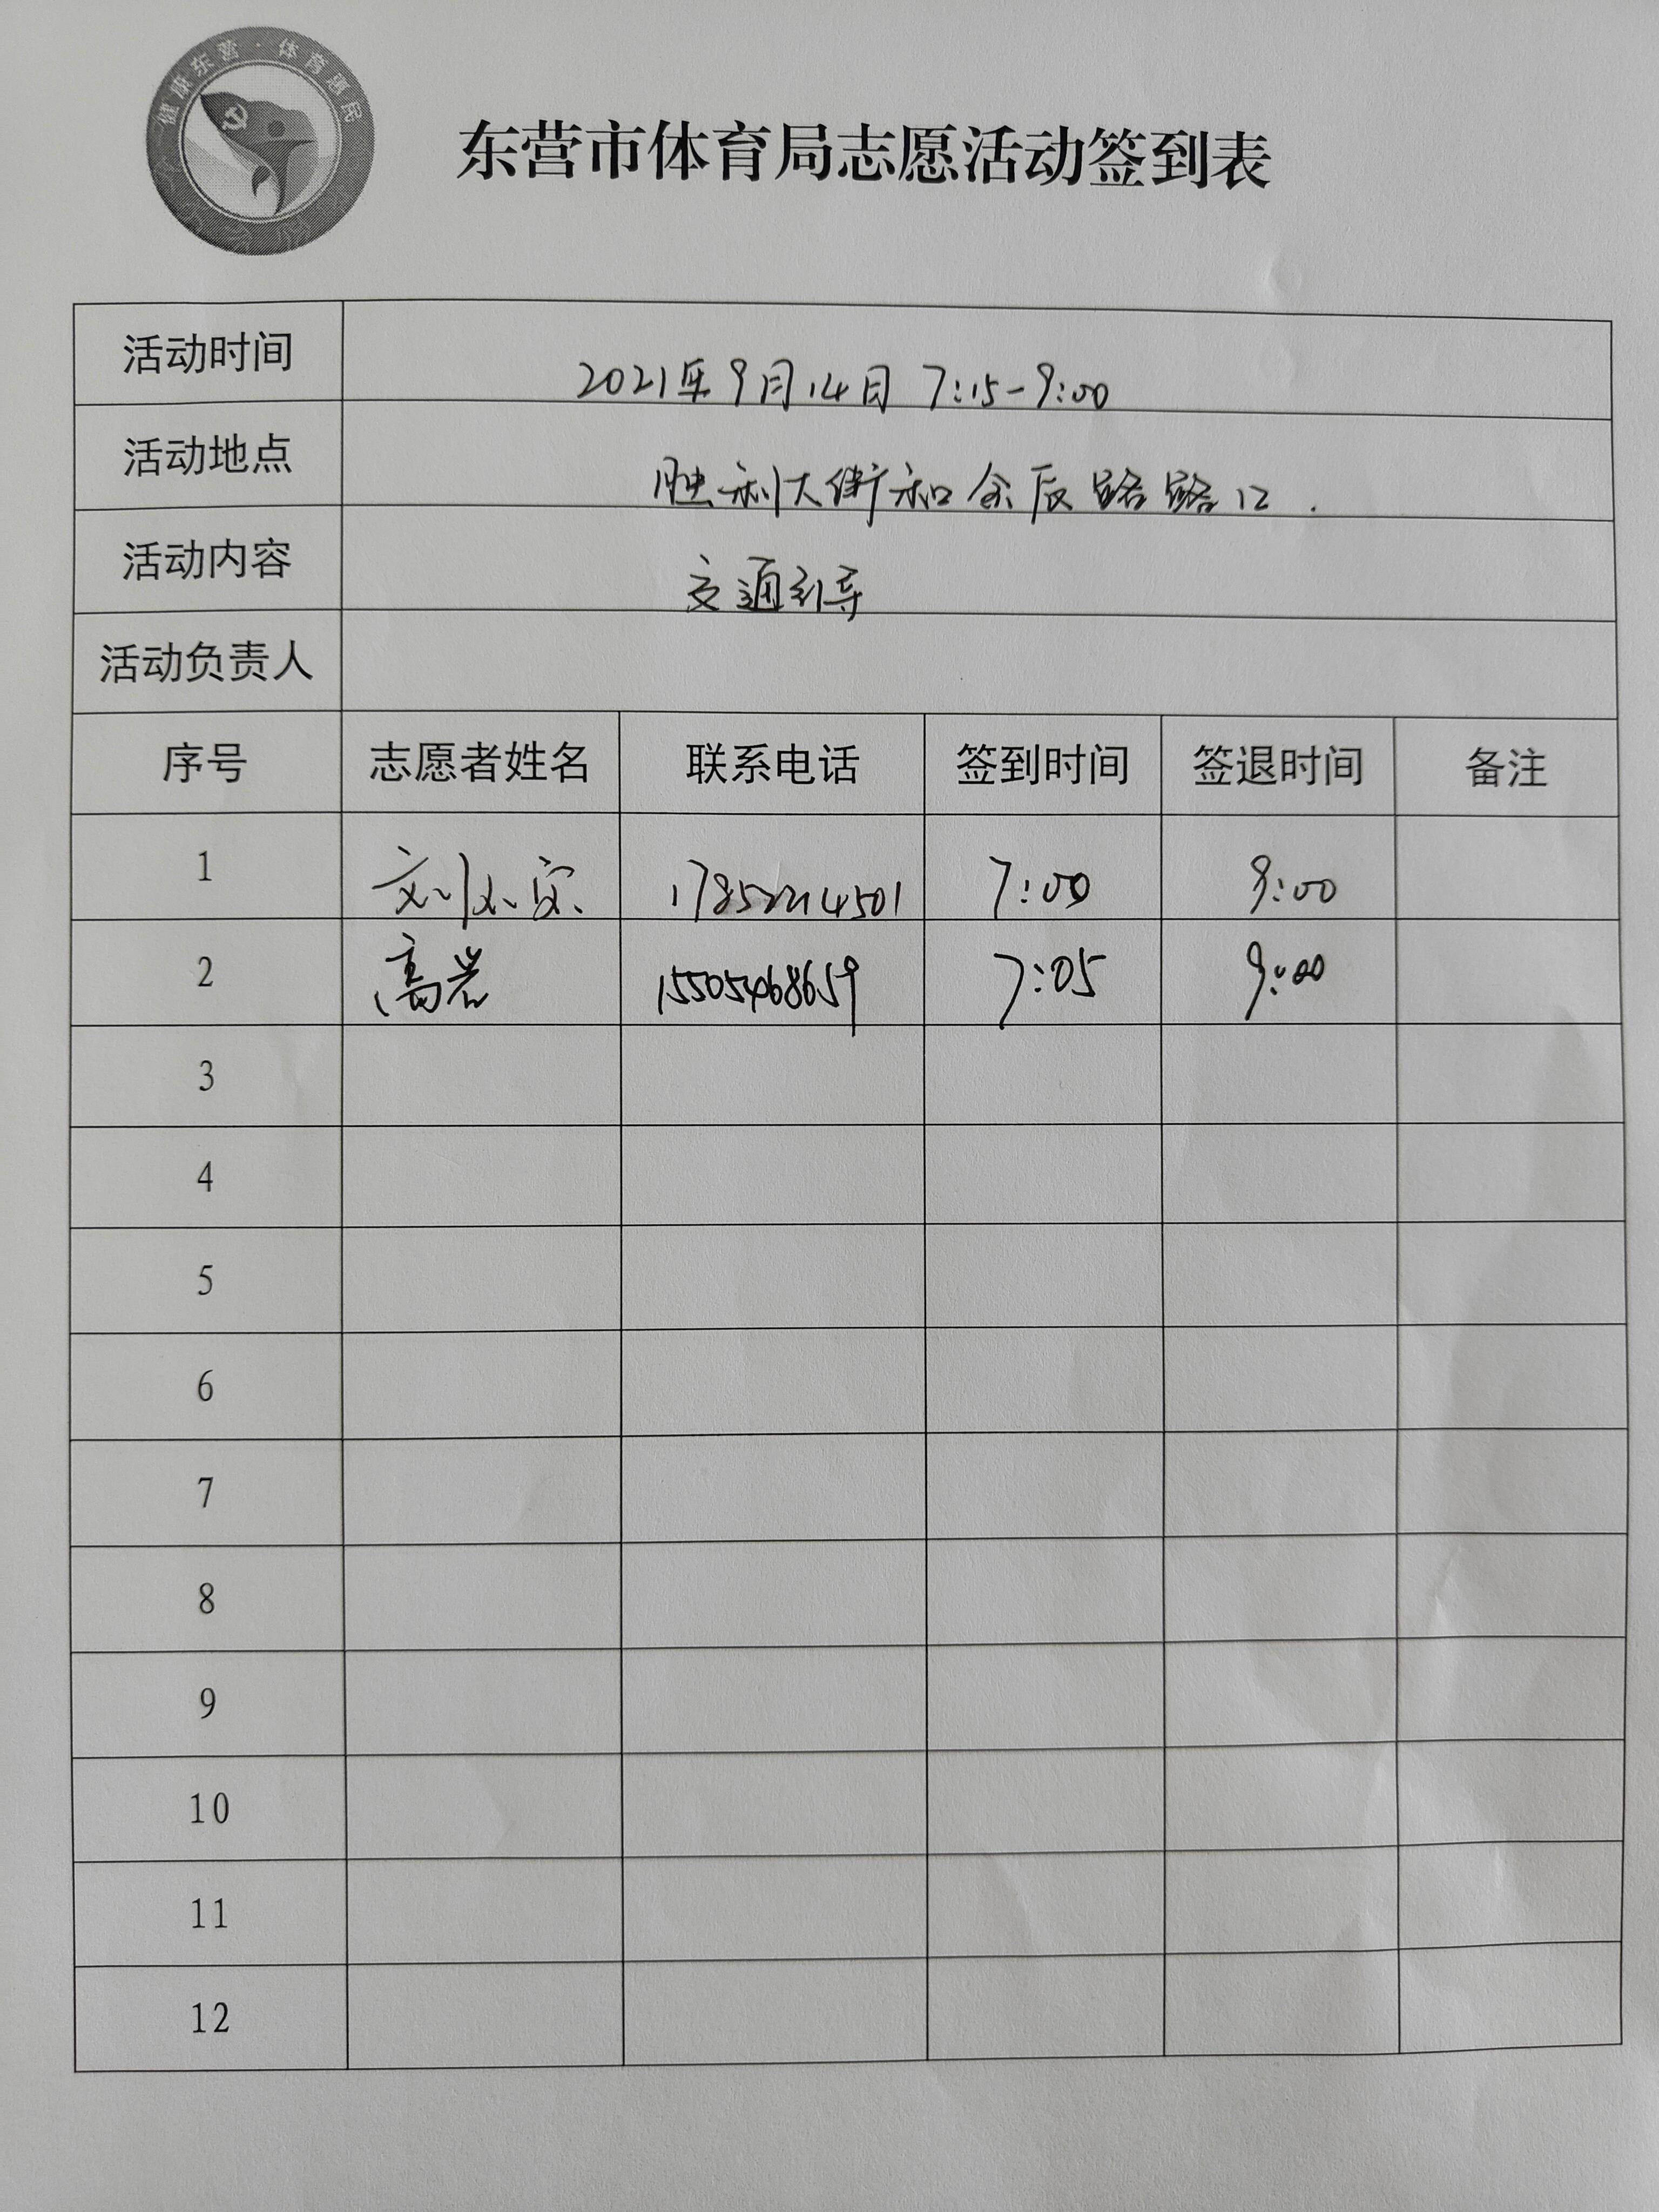 健康东营·体育惠民
东营市体育局志愿活动签到表
活动时间 2021年9月14日 7:15-9:00
活动地点 胜利大街和余辰路路口.
活动内容 交通引导
活动负责人
序号 志愿者姓名 联系电话 签到时间 签退时间 备注
1 7:00 9:00
2 高岩 15505468659 7:05 9:00
3
4
5
6
7
8
9
10
11
12